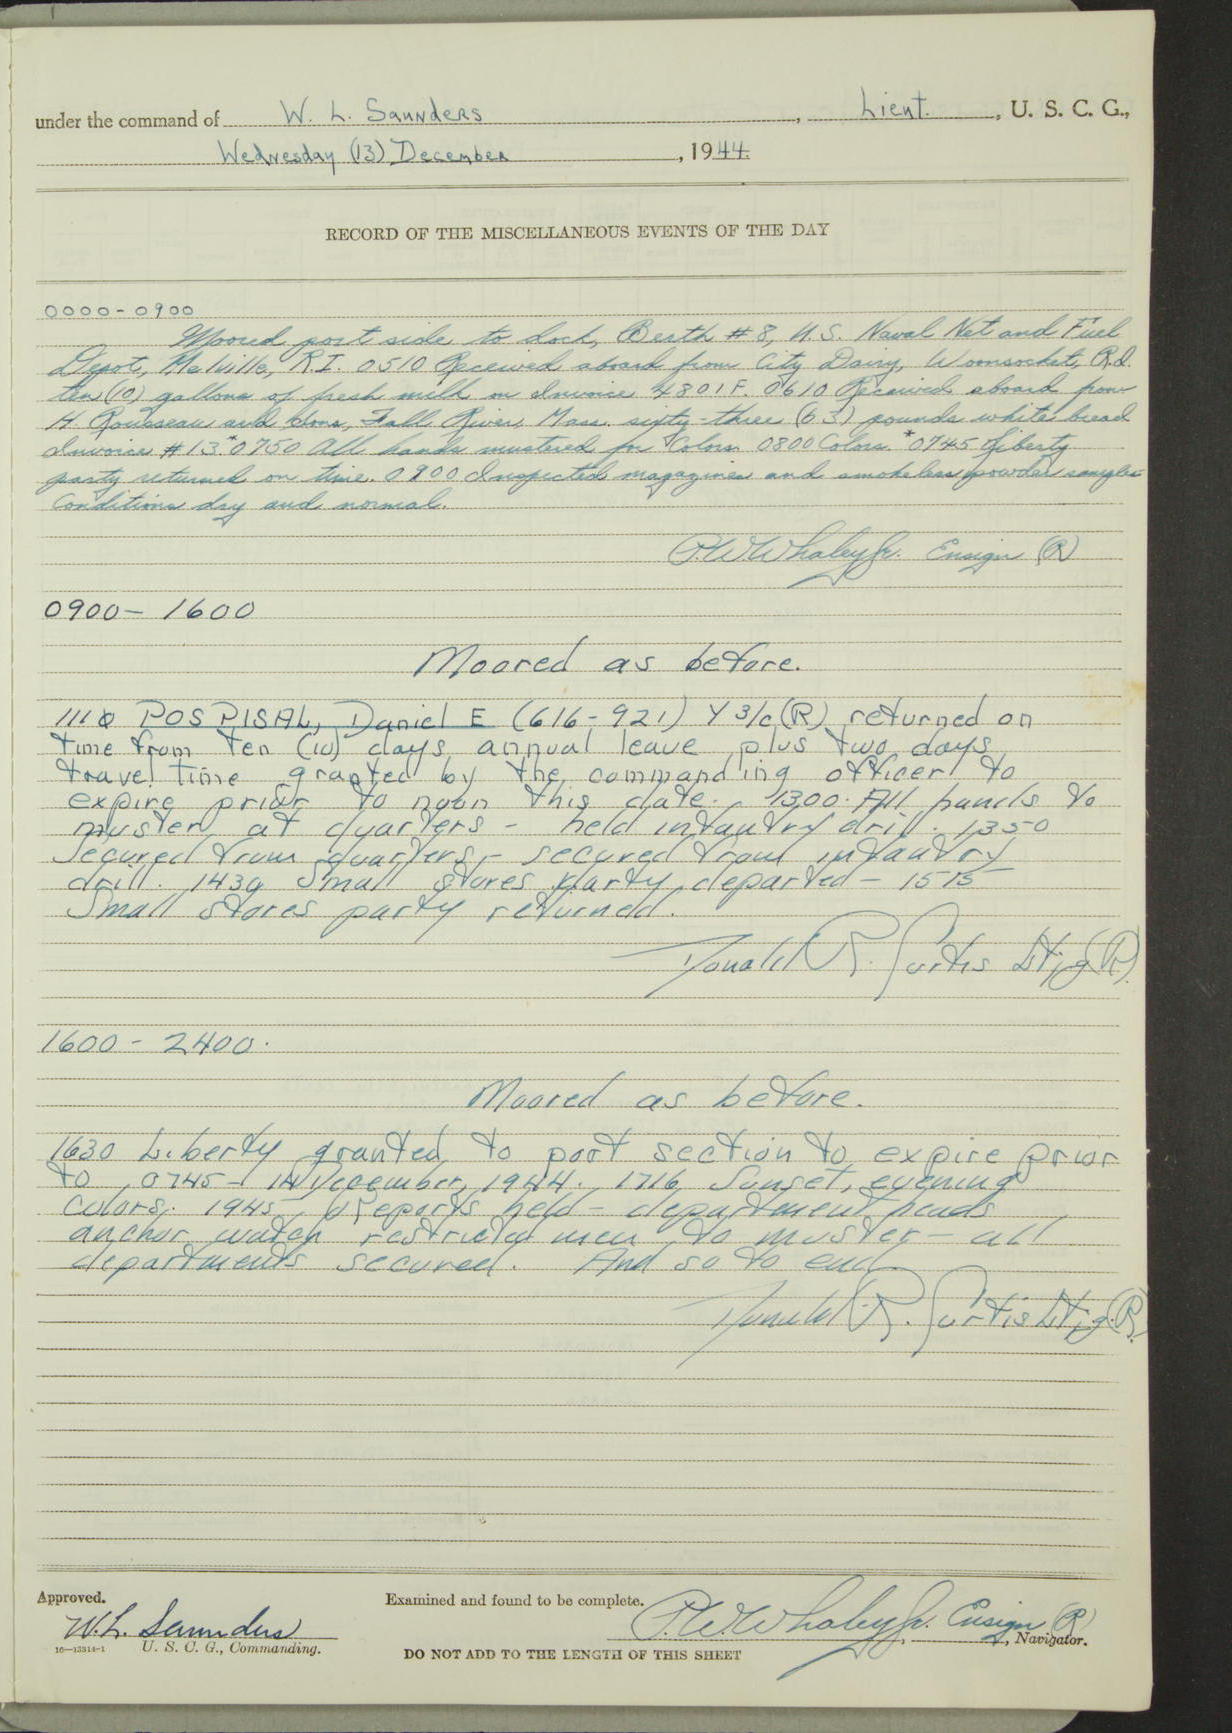 under the command of W. L. Saunders, Lieut., U. S. C. G.,
Wednesday (13) December, 1944.
RECORD OF THE MISCELLANEOUS EVENTS OF THE DAY
0000-0900
Moored port side to dock, Berth #8, U.S. Naval Net and Fuel
Depot, Melville, R.I. 0510 Received aboard from City Dairy, Woonsocket, R.I.
ten (10) gallons of fresh milk on Invoice 4801F. 0610 Received aboard from
H. Rousseau and Sons, Fall River, Mass. sixty-three (63) pounds white bread
Invoice #13 *0750 All hands mustered for Colors. 0800 Colors. *0745 Liberty
party returned on time. 0900 Inspected magazines and smokeless powder samples
Conditions dry and normal.
P.W. Whaley Jr. Ensign (R)
0900- 1600
Moored as before.
1110 POSPISAL, Daniel E (616-921) Y 3/c (R) returned on
time from ten (10) days annual leave plus two days
travel time granted by the commanding officer to
expire prior to noon this date. 1300. All hands to
muster at quarters - held infantry drill. 1350
Secured from quarters - secured from infantry
drill. 1430 Small stores party departed - 1515
Small stores party returned.
Donald R. Curtis Ltjg (R).
1600 - 2400.
Moored as before.
1630 Liberty granted to port section to expire prior
to 0745 - 14 December, 1944. 1716 Sunset, evening
colors. 1945 reports held - department heads
anchor watch restricted men to muster - all
departments secured. And so to end
Donald R. Curtis Ltjg. (R).
Approved.
Examined and found to be complete.
W.L. Saunders
P.W. Whaley Jr. Ensign (R)
16—13314-1 U. S. C. G., Commanding.
, Navigator.
DO NOT ADD TO THE LENGTH OF THIS SHEET